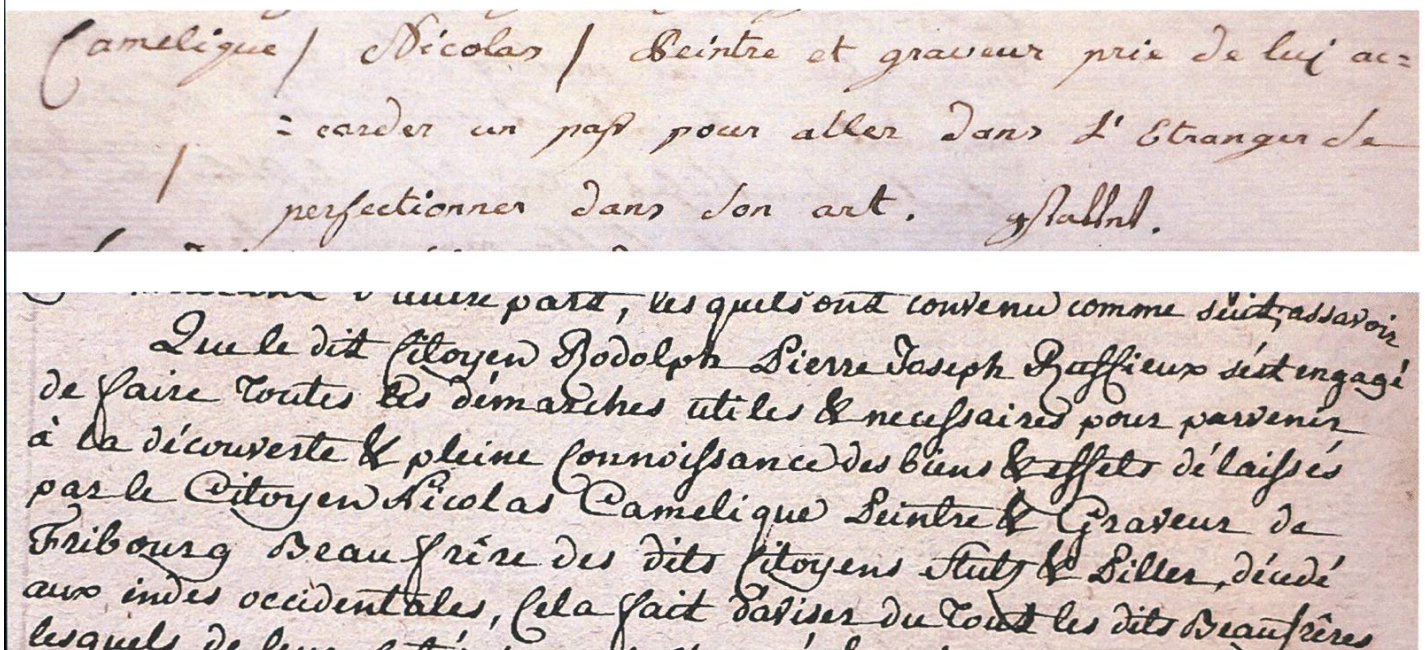 Camelique / Nicolas / Peintre et graveur prie de luy ac=
= corder un pass pour aller dans L'Etranger se
perfectionner dans son art.
d'autre part, les quels ont convenu comme suit, assavoir
Que le dit Citoyen Rodolph Pierre Joseph Ruffieux s'est engagé
de faire toutes les démarches utiles & necessaires pour parvenir
à la découverte & pleine Connoissance des biens & effets délaissés
par le Citoyen Nicolas Camelique Peintre & Graveur de
Fribourg Beau frère des dits Citoyens Stutz & Piller, décédé
aux indes occidentales, Cela fait d'aviser du Tout les dits Beaufrères
lesquels de leur